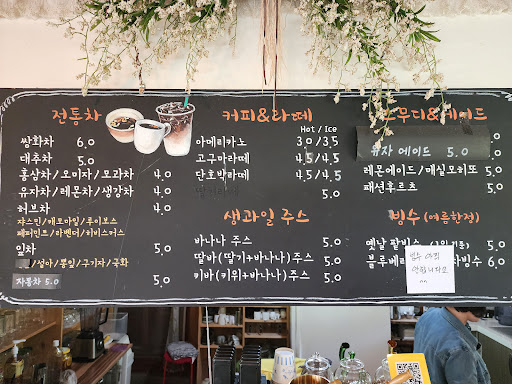 전통차
쌍화차 6.0
대추차 5.0
홍삼차/오미차/모과차 4.0
유자차/레몬차/생강차 4.0
허브차 4.0
쟈스민/캐모마일/루이보스
페퍼민트/라벤더/히비스커스
잎차 5.0
/구기자/국화
자몽차 5.0
커피&라떼
Hot / Ice
아메리카노 3.0/3.5
고구마라떼 4.5/4.5
단호박라떼 4.5/4.5
5.0
생과일 주스
바나나 주스 5.0
딸바(딸기+바나나)주스 5.0
키바(키위+바나나)주스 5.0
스무디&에이드
유자 에이드 5.0
레몬에이드/매실모히또 5.0
패션후르츠 5.0
빙수 (여름한정)
옛날 팥빙수 5.0
블루베리 빙수 6.0
안합니다
^^